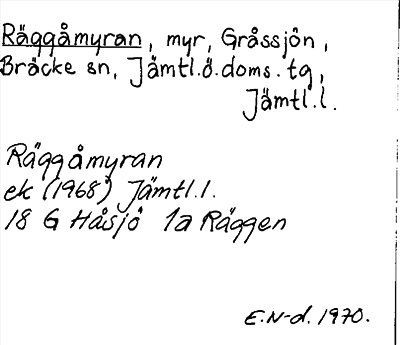 Räggåmyran, myr, Gråssjön,
Bräcke sn, Jämtl.ö.doms.tg,
Jämtl.l.
Räggåmyran
ek (1968) Jämtl.l.
18 G Håsjö 1a Räggen
E.N-d. 1970.